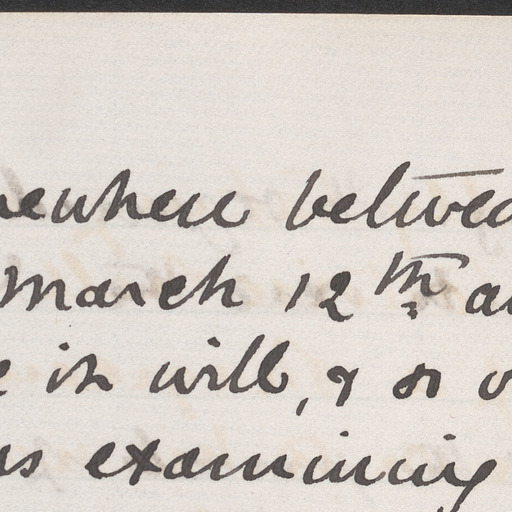 newhere betwee
March 12th an
e in will, & so
as examining